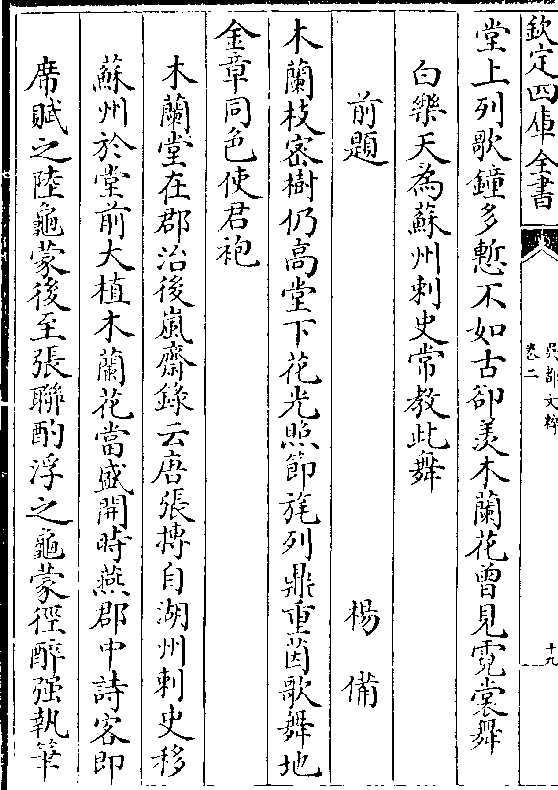 欽定四庫全書
吳都文粹
卷二
十九
堂上列歌鐘多慙不如古卻羡木蘭花曾見霓裳舞
白樂天為蘇州刺史常教此舞
前題 楊備
木蘭枝密樹仍高堂下花光照節旄列鼎重茵歌舞地
金章同色使君袍
木蘭堂在郡治後嵐齋錄云唐張摶自湖州刺史移
蘇州於堂前大植木蘭花當盛開時燕郡中詩客即
席賦之陸龜蒙後至張聯酌浮之龜蒙徑醉强執筆